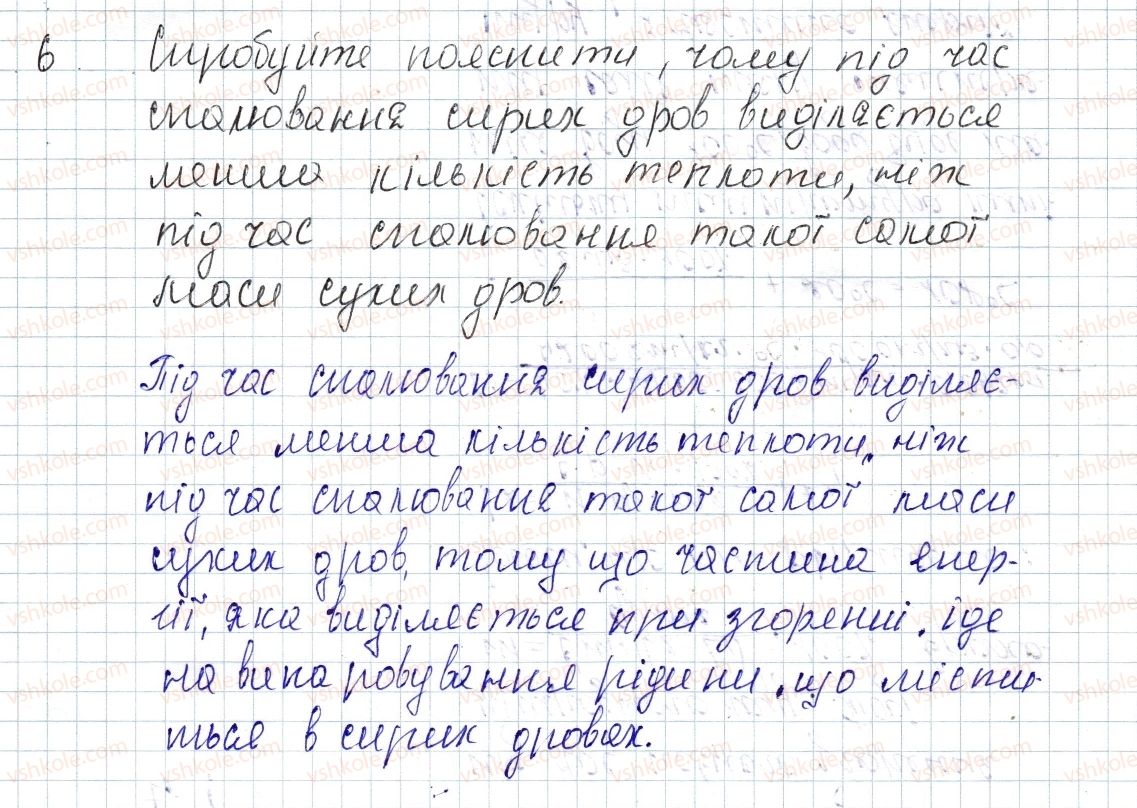 6 Спробуйте пояснити, чому під час
спалювання сирих дров виділяється
менша кількість теплоти, ніж
під час спалювання такої самої
маси сухих дров.
Під час спалювання сирих дров виділяє-
ться менша кількість теплоти, ніж
під час спалювання такої самої маси
сухих дров, тому що частина енер-
гії, яка виділяється при згоренні, іде
на випаровування рідини, що місти-
ться в сирих дровах.